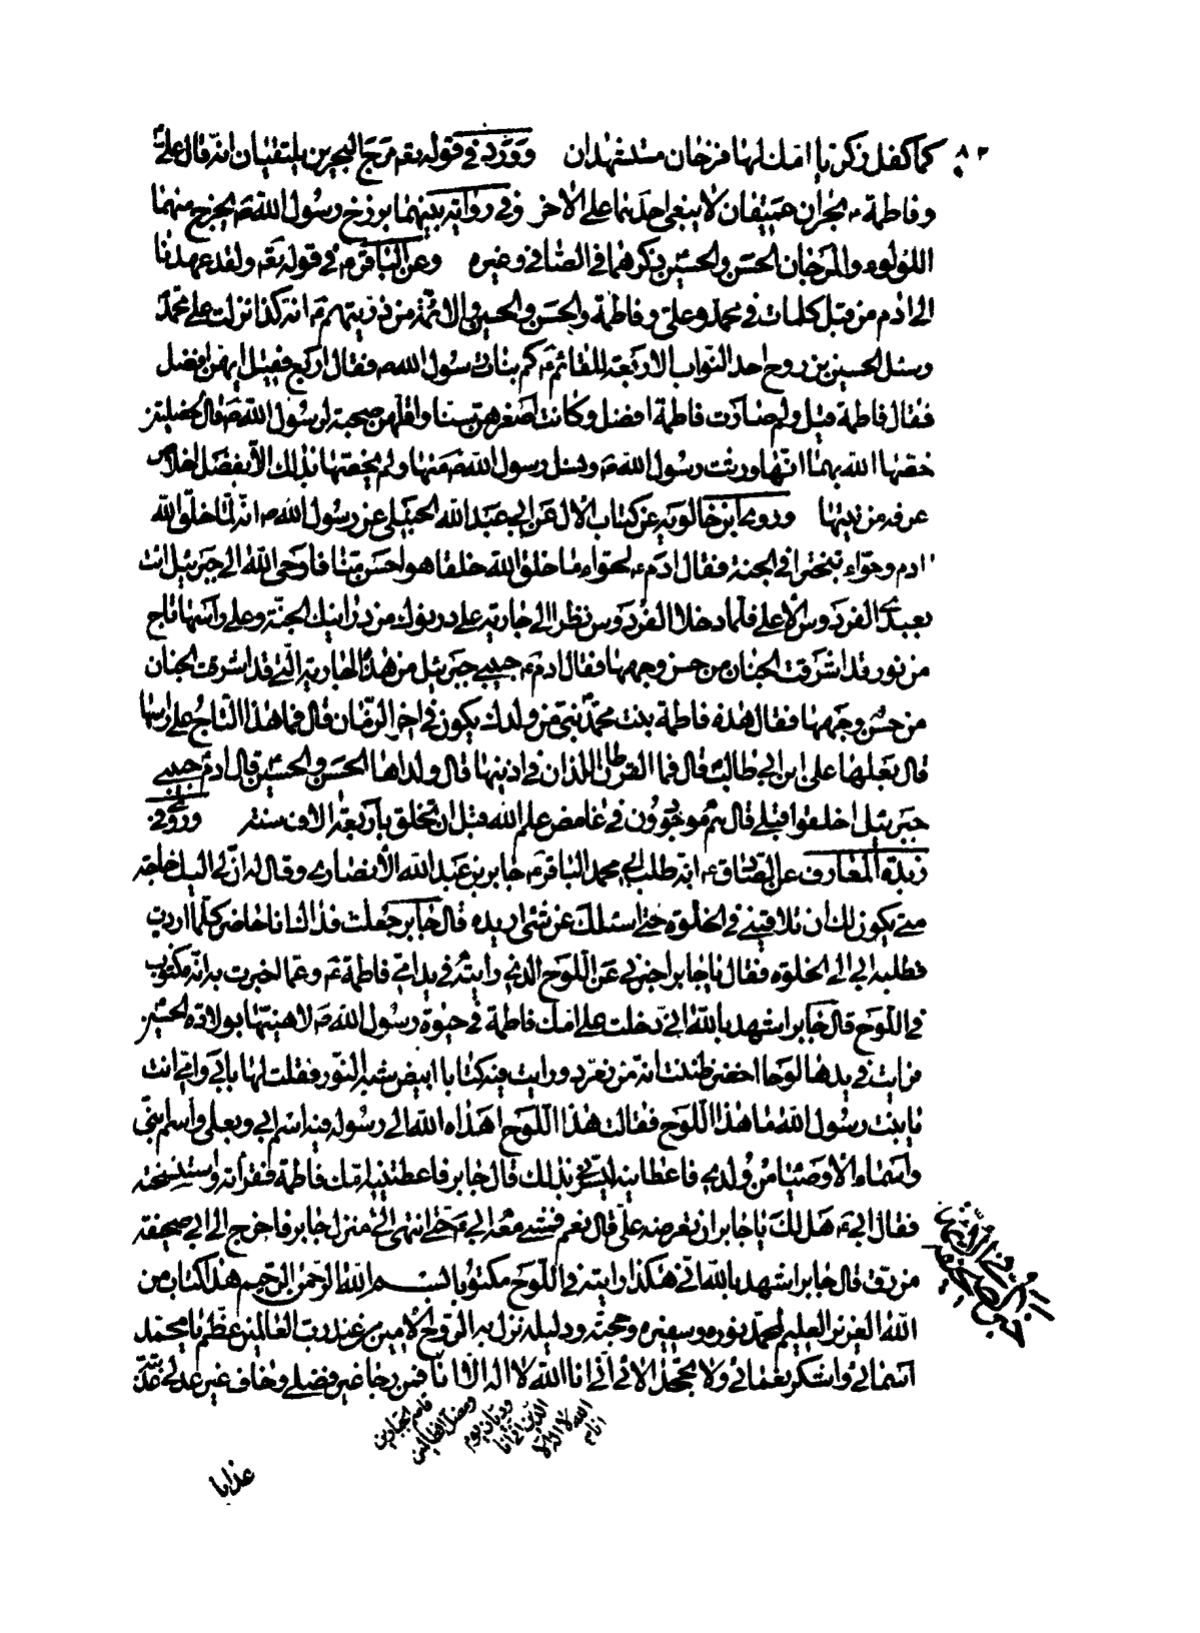 ٨٢
كما كفل زكريا امك لها فرخان مستشهدان وورد في قوله تعه مرج البحرين يلتقيان انه قال علي
وفاطمة ع بحران عميقان لا يبغي احدهما على الاخر وفي رواية بينهما برزخ رسول الله ص يخرج منهما
اللؤلؤ والمرجان الحسن والحسين ذكرهما في الصافي وغيره وعن الباقر ع في قوله تعه ولقد عهدنا
الى ادم من قبل كلمات في محمد وعلي وفاطمة والحسن والحسين والائمة من ذريتهم ع انه كذا نزلت على محمد
وسئل الحسين بن روح احد النواب الاربعة للقائم ع كم بنات رسول الله ص فقال اربع فقيل ايهن افضل
فقال فاطمة قيل ولم صارت فاطمة افضل وكانت اصغرهن سنا واقلهن صحبة لرسول الله ص قال لخصلتين
خصها الله بهما انها ورثت رسول الله ص ونسل رسول الله ص منها ولم يخصها بذلك الا بفضل اخلاص
عرفه من نيتها وروى ابن خالويه عن كتاب الآل عن ابي عبد الله الحنبلي عن رسول الله ص انه لما خلق الله
ادم وحواء تبخترا في الجنة فقال ادم ع لحواء ما خلق الله خلقا هو احسن منا فاوحى الله الى جبرئيل ائت
بعبدي الفردوس الاعلى فلما دخلا الفردوس نظرا الى جارية على درنوك من درانيك الجنة وعلى راسها تاج
من نور قد اشرقت الجنان من حسن وجهها فقال ادم ع حبيبي جبرئيل من هذه الجارية التي قد اشرقت الجنان
من حسن وجهها فقال هذه فاطمة بنت محمد نبي من ولدك يكون في اخر الزمان قال فما هذا التاج على راسها
قال بعلها علي ابن ابي طالب قال فما القرطان اللذان في اذنيها قال ولداها الحسن والحسين قال ادم حبيبي
جبرئيل اخلقوا قبلي قال هم موجودون في غامض علم الله قبل ان تخلق باربعة الاف سنة وروى في
زبدة المعارف عن الصادق ع انه طلب ابي محمد الباقر ع جابر بن عبد الله الانصاري وقال له ان لي اليك حاجة
متى يكون لك ان تلاقيني في الخلوة حتى اسئلك عن شئ اريده قال جابر جعلت فداك انا حاضر كلما اردت
فطلبه ابي الى الخلوة فقال يا جابر اخبرني عن اللوح الذي رايته في يد امي فاطمة ع وعما اخبرت به انه مكتوب
في اللوح قال جابر اشهد بالله اني دخلت على امك فاطمة في حيوة رسول الله ص لاهنيتها بولادة الحسين
فرايت في يدها لوحا اخضر ظننت انه من زمرد ورايت فيه كتابا ابيض شبه النور فقلت لها بابي وامي انت
يا بنت رسول الله ما هذا اللوح فقالت هذا اللوح اهداه الله الى رسوله فيه اسم ابي وبعلي واسم ابني
واسماء الاوصيا من ولدي فاعطانيه ليسرني بذلك قال جابر فاعطتنيه امك فاطمة فقراته واستنسخته
فقال ابي ع هل لك يا جابر ان تعرضه علي قال نعم فمشى معه ابي ع حتى انتهى الى منزل جابر فاخرج الى ابي صحيفة
من رق قال جابر اشهد بالله اني هكذا رايته في اللوح مكتوبا بسم الله الرحمن الرحيم هذا كتاب من
الله العزيز العليم لمحمد نوره وسفيره وحجبه ودليله نزل به الروح الامين من عند رب العالمين عظم يا محمد
اسمائي واشكر نعمائي ولا تجحد الائي اني انا الله لا اله الا انا فمن رجا غير فضلي وخاف غير عدلي عذبته
قاصم الجبارين ومذل الظالمين وديان يوم الدين اني انا الله لا اله الا انا
عذابا